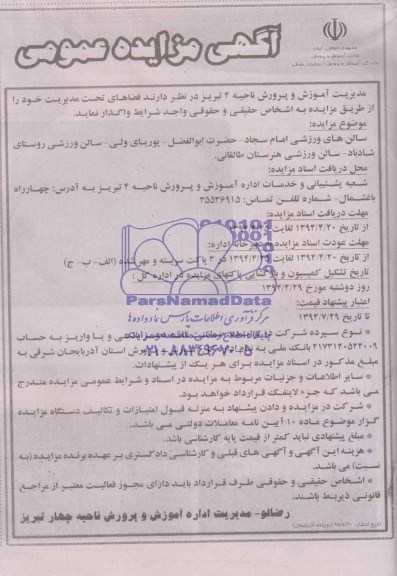 آگهی مزایده عمومی
جمهوری اسلامی ایران
وزارت آموزش و پرورش
مدیریت آموزش و پرورش ناحیه ۴ تبریز در نظر دارند فضاهای تحت مدیریت خود را
از طریق مزایده به اشخاص حقیقی و حقوقی واجد شرایط واگذار نماید.
موضوع مزایده:
سالن های ورزشی امام سجاد- حضرت ابوالفضل- پوریای ولی- سالن ورزشی روستای
شادباد- سالن ورزشی هنرستان طالقانی.
محل دریافت اسناد مزایده:
شعبه پشتیبانی و خدمات اداره آموزش و پرورش ناحیه ۴ تبریز به آدرس: چهارراه
باغشمال- شماره تلفن تماس: ۳۵۵۳۶۹۱۵
مهلت دریافت اسناد مزایده:
از تاریخ ۱۳۹۴/۴/۲۰ لغایت
مهلت عودت اسناد مزایده به دبیرخانه اداره:
از تاریخ ۱۳۹۴/۴/۲۰ لغایت در ۳ پاکت سربسته و مهر شده (الف- ب- ج)
تاریخ تشکیل کمیسیون و بازگشایی پاکتهای مزایده در اداره کل:
روز دوشنبه مورخ ۱۳۹۴/۴/۲۹
اعتبار پیشنهاد قیمت:
تا تاریخ ۱۳۹۴/۷/۲۹
ParsNamadData
مرکز فرآوری اطلاعات پارس نماد داده ها
۰۲۱-۸۸۳۴۹۶۷۰-۵
* نوع سپرده شرکت در و یا واریز به حساب
۲۱۷۳۱۳۰۵۲۴۰۰۹ بانک ملی به استان آذربایجان شرقی به
مبلغ مذکور در اسناد مزایده برای هر یک از پیشنهادات.
* سایر اطلاعات و جزئیات مربوط به مزایده در اسناد و شرایط عمومی مزایده مندرج
می باشد که جزء لاینفک قرارداد خواهد بود.
* شرکت در مزایده و دادن پیشنهاد به منزله قبول امتیازات و تکالیف دستگاه مزایده
گزار موضوع ماده ۱۰ آیین نامه معاملات دولتی می باشد.
* مبلغ پیشنهادی نباید کمتر از قیمت پایه کارشناسی باشد.
* هزینه این آگهی و آگهی های قبلی و کارشناسی دادگستری بر عهده برنده مزایده (به
نسبت) می باشد.
* اشخاص حقیقی و حقوقی طرف قرارداد باید دارای مجوز فعالیت معتبر از مراجع
قانونی ذیربط باشند.
رضالو- مدیریت اداره آموزش و پرورش ناحیه چهار تبریز